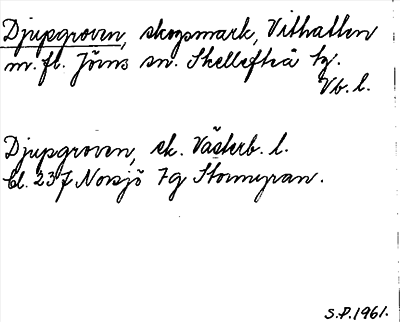 Djupgroven, skogsmark, Vithatten
m.fl. Jörns sn. Skellefteå tg.
Vb. l.
Djupgroven, ek. Västerb. l.
bl. 237 Norsjö 7g Stormyran.
S.P. 1961.